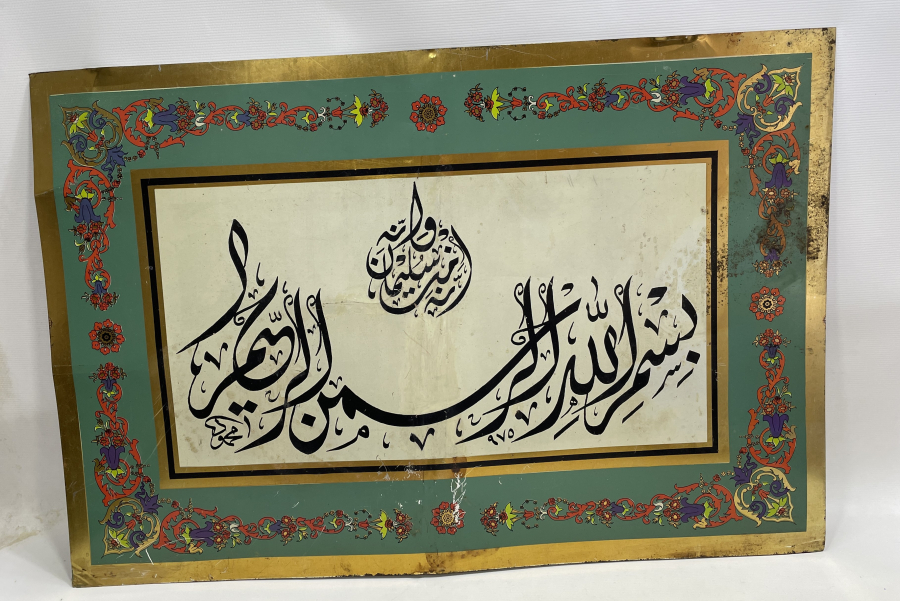 اِنَّهُ مِنْ سُلَيْمَانَ وَاِنَّهُ
بِسْمِ اللهِ الرَّحْمٰنِ الرَّحِيمِ
٩٧٥